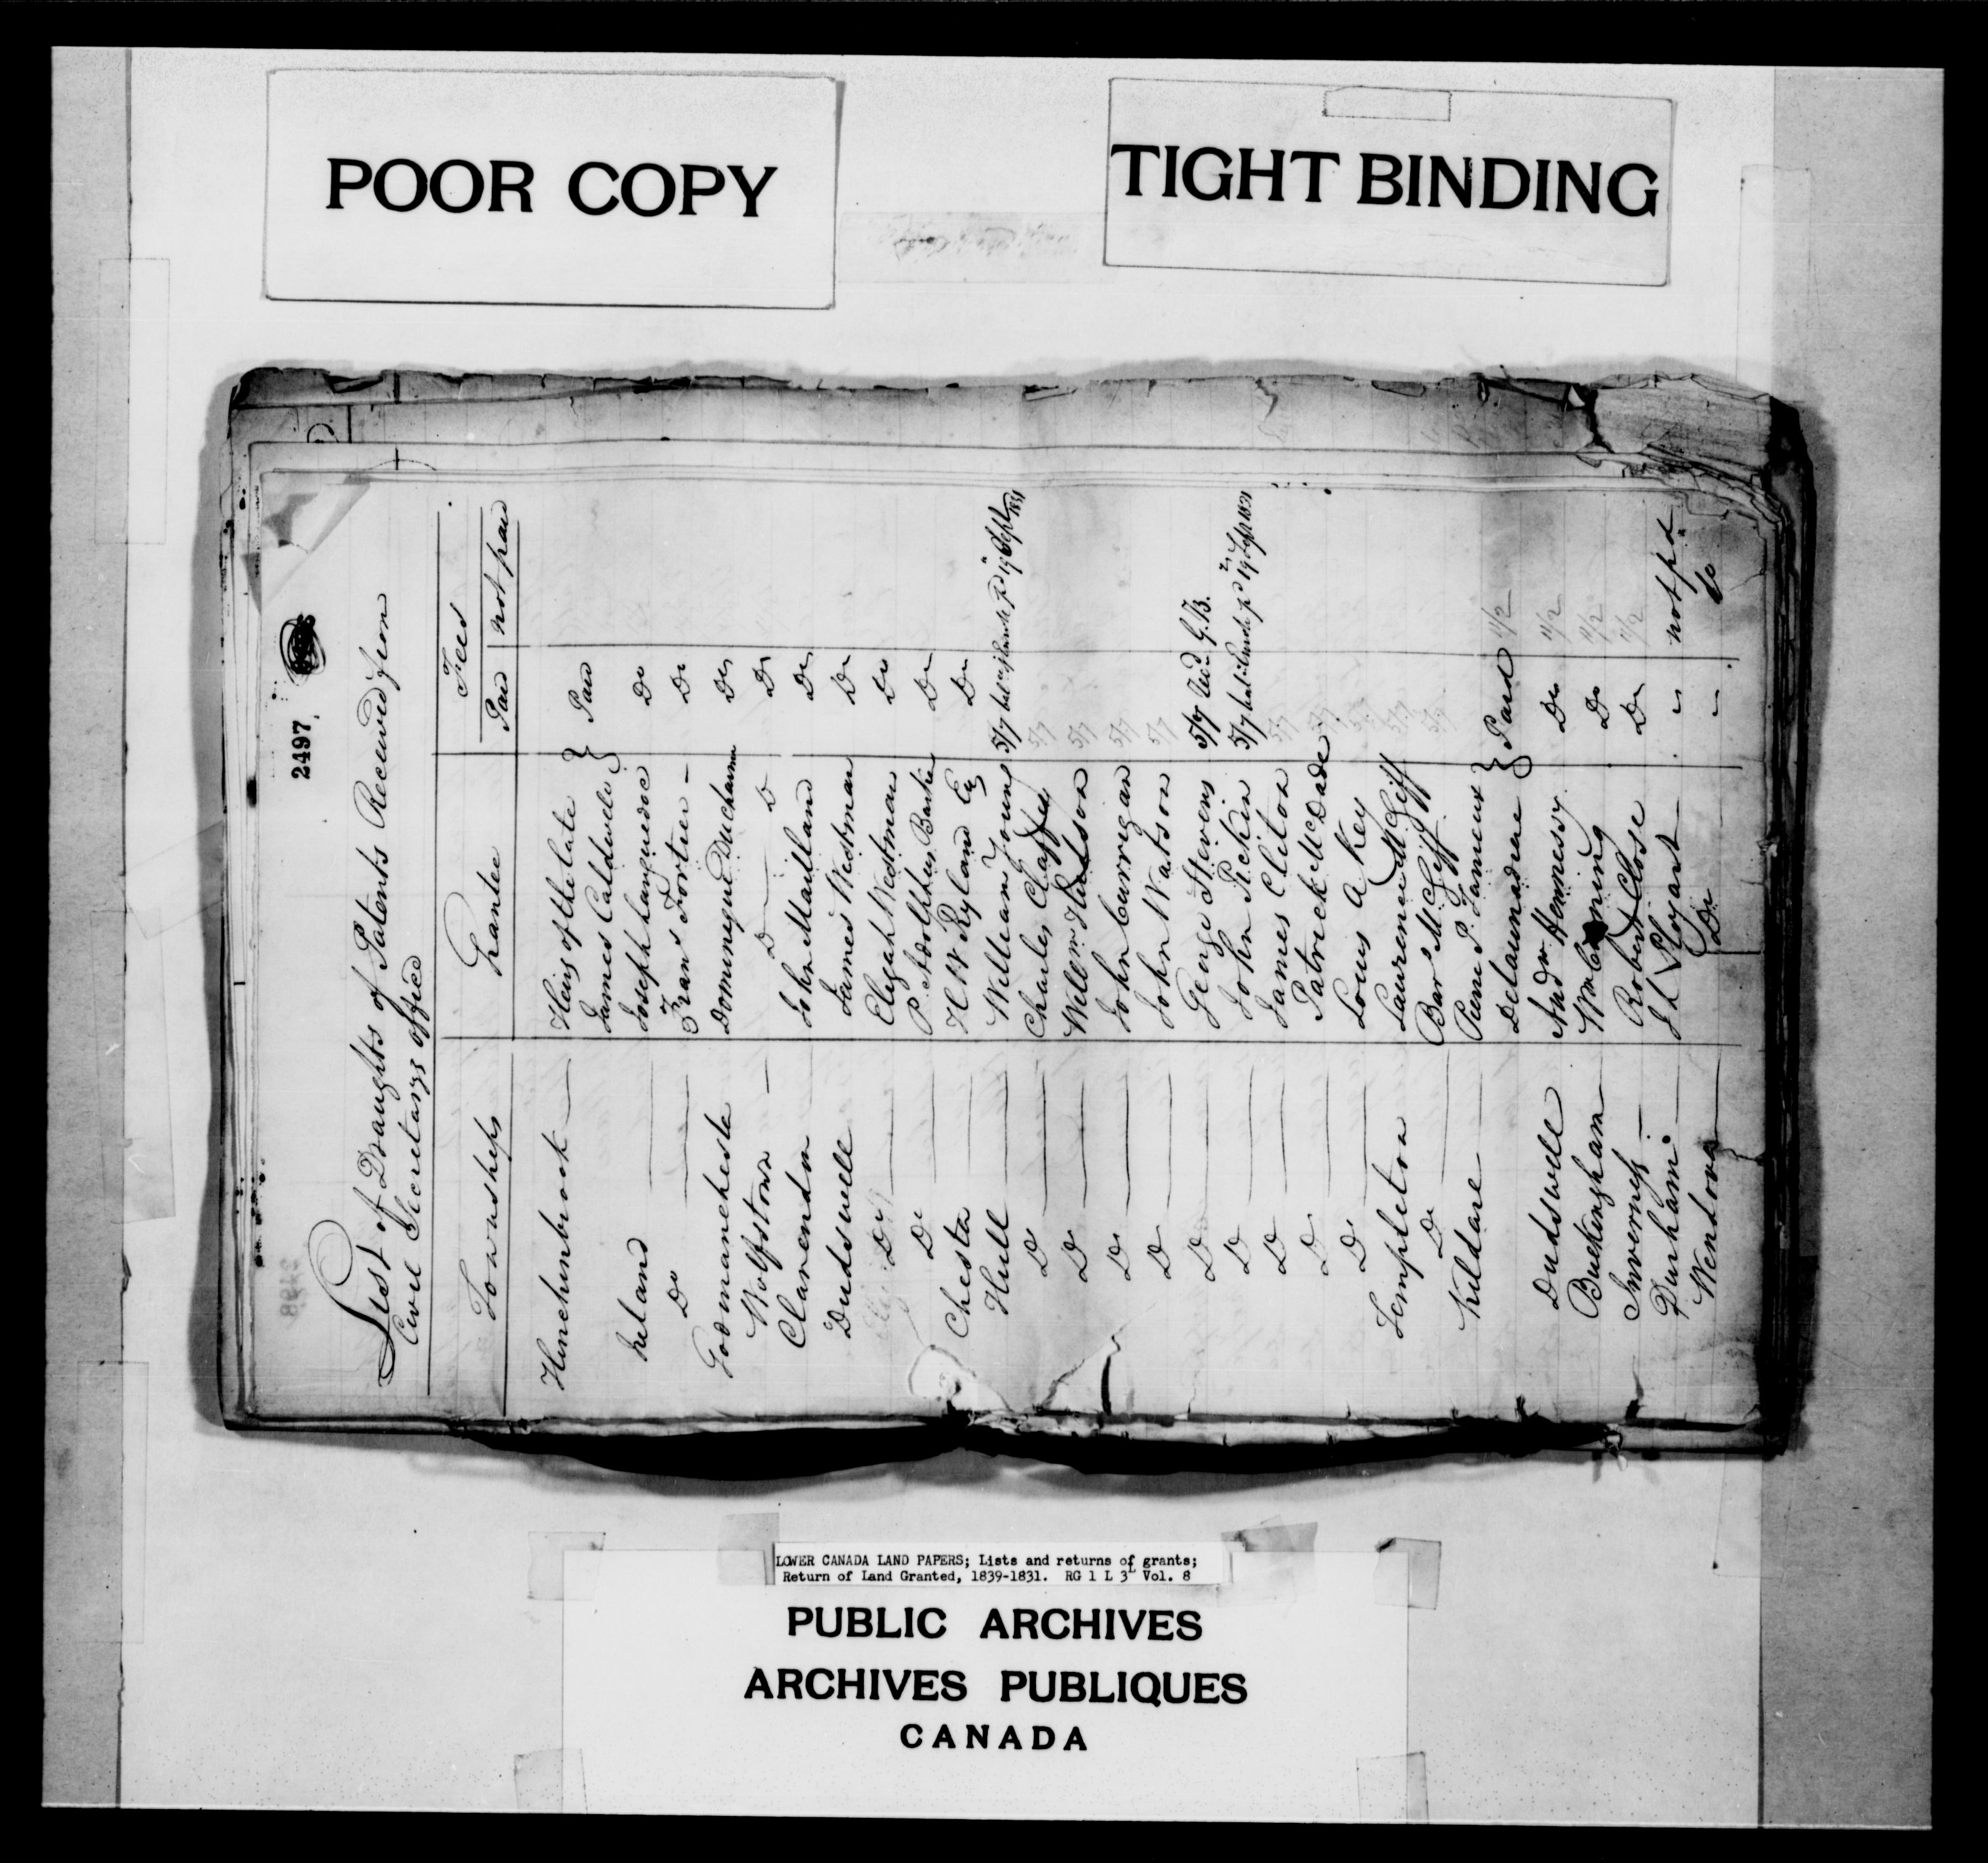 POOR COPY
TIGHT BINDING
2497
List of Draughts of Patents Received from
Civil Secretarys office
Townships Grantee Fees
Paid not paid
Hinchinbrook — Heirs of the late
James Caldwell } Paid
Ireland — Joseph Languedoc Do
Do — Frans Fortier – Do
Godmanchester Dominique Ducharme Do
Wolfstown — D — D Do
Clarendon John Maitland Do
Dudswell James Westman Do
Do — Elijah Westman Do
Do — P. Adolphus Do
Chester — H W Ryland Esq Do
Hull — William Young 5/7 19 Sept 1831
Do — Charles Chaffey 5/7
Do — Willm Hudson 5/7
Do — John Currigan 5/7
Do — John Watson 5/7
Do — George Stevens 5/7 G.B.
Do — John Pickin 5/7 19 Sept 1831
Do — James Cliton 5/7
Do — Patrick McDade 5/7
Do — Louis A Key 5/7
Templeton Laurence McGiff 5/7
Do — Bar McGiff 5/7
Kildare — Pierre P.
Delaunadiere } Paid 11/2
Dudswell Andw Hennessy Do 11/2
Buckingham Wm Do 11/2
Inverness — Robert Close Do 11/2
Durham — J L Ployart — " not pd
Wendover — Do — " Do
LOWER CANADA LAND PAPERS; Lists and returns of grants;
Return of Land Granted, 1839-1831. RG 1 L 3L Vol. 8
PUBLIC ARCHIVES
ARCHIVES PUBLIQUES
CANADA